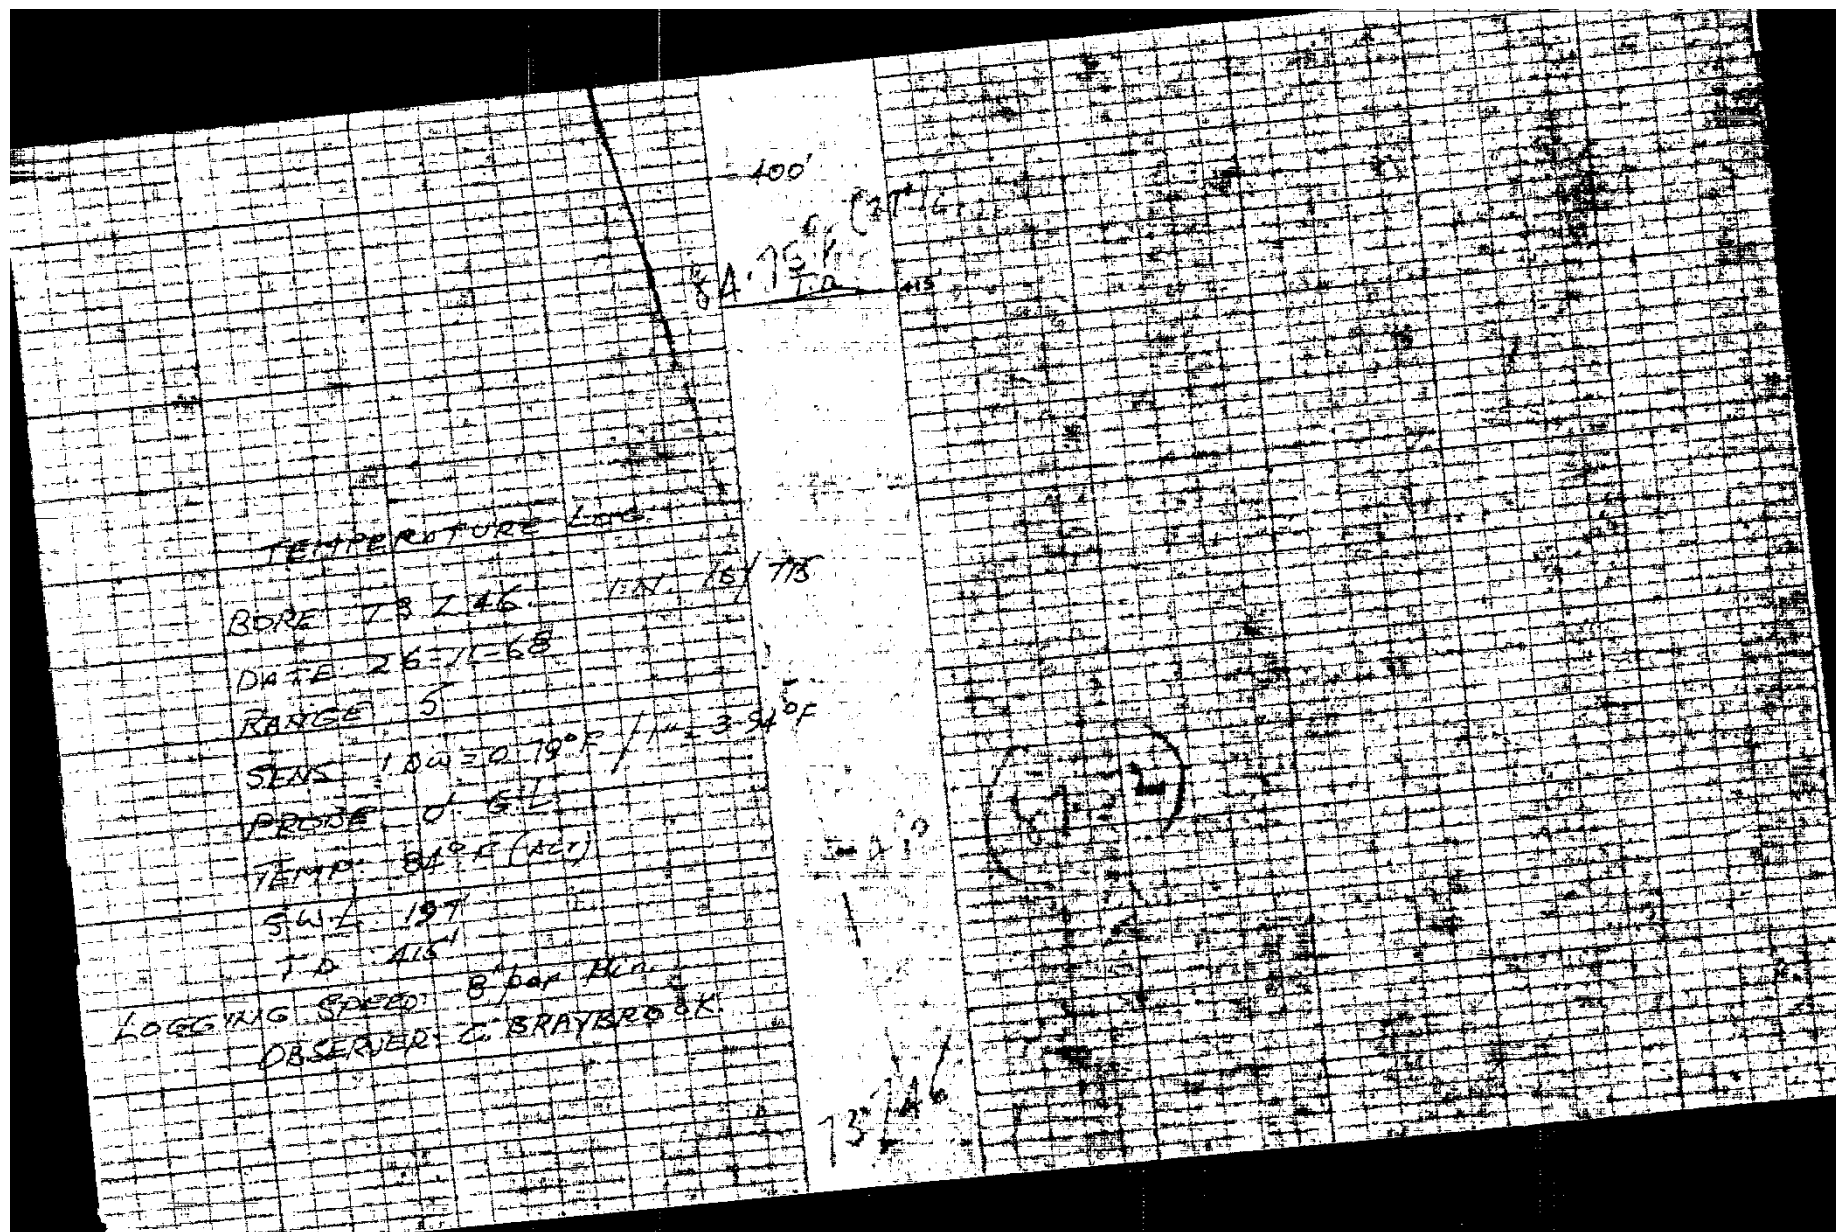 400'
84.75°F
T.D. 415
TEMPERATURE LOG
BORE 73746. I.N.
DATE 26-11-68
RANGE 5
SENS 1 DIV = 0.79°F / 1" = 3.94°F
PROBE @ G.L.
TEMP. 84°F (ACT)
SWL 197'
TD 415'
LOGGING SPEED: 8' per Min.
OBSERVER: C. BRAYBROOK.
73746